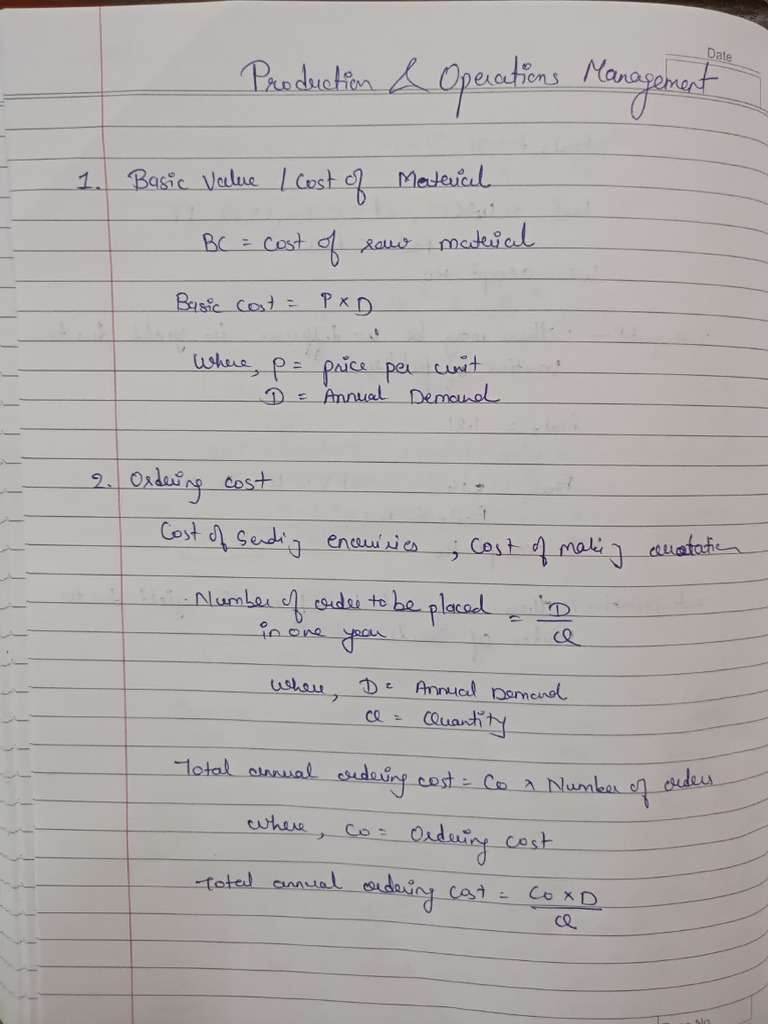 Date
Production & Operations Management
1. Basic Value / Cost of Material
BC = Cost of raw material
Basic cost = P x D
Where, P = price per unit
D = Annual Demand
2. Ordering cost
Cost of sending enquiries ; Cost of making quotation
Number of order to be placed in one year = D/Q
where, D = Annual Demand
Q = Quantity
Total annual ordering cost = Co x Number of orders
where, Co = Ordering cost
Total annual ordering cost = Co x D / Q